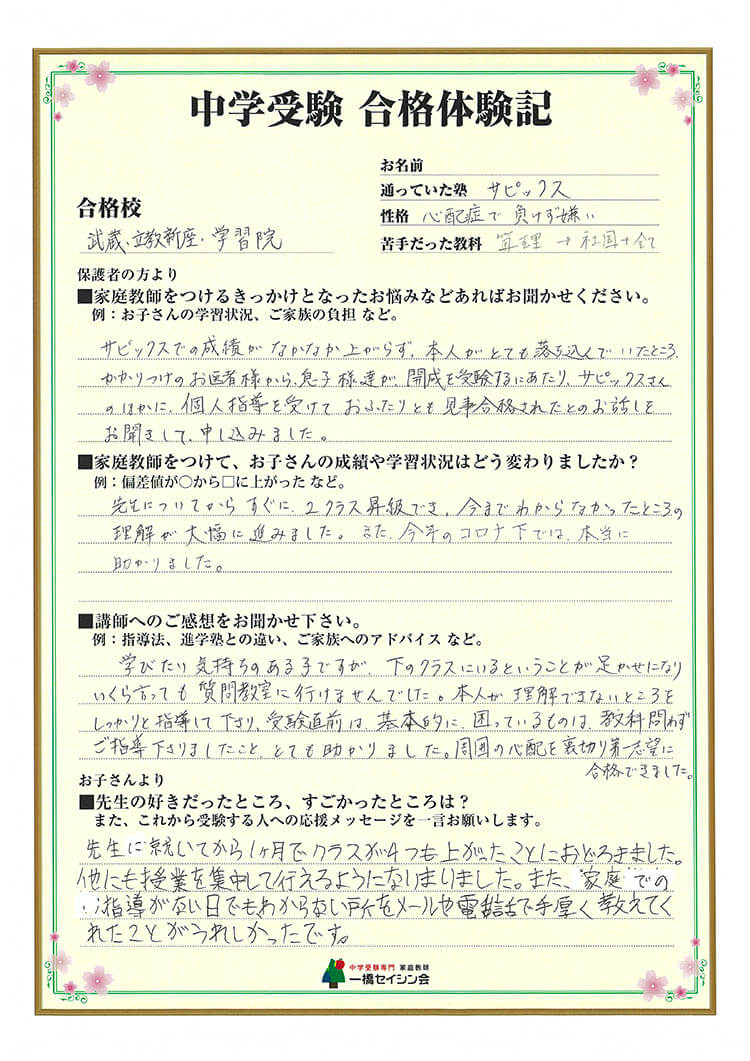 中学受験 合格体験記
お名前
通っていた塾 サピックス
合格校
性格 心配症で負けず嫌い
武蔵、立教新座、学習院
苦手だった教科 算理→社国+全て
保護者の方より
■家庭教師をつけるきっかけとなったお悩みなどあればお聞かせください。
例：お子さんの学習状況、ご家族の負担 など。
サピックスでの成績がなかなか上がらず、本人がとても落ち込んでいたところ、
かかりつけのお医者様から、息子様達が、開成を受験するにあたり、サピックスさん
のほかに、個人指導を受けておふたりとも見事合格されたとのお話しを
お聞きして、申し込みました。
■家庭教師をつけて、お子さんの成績や学習状況はどう変わりましたか？
例：偏差値が○から□に上がった など。
先生についてからすぐに、2クラス昇級でき、今までわからなかったところの
理解が大幅に進みました。また、今年のコロナ下では、本当に
助かりました。
■講師へのご感想をお聞かせ下さい。
例：指導法、進学塾との違い、ご家族へのアドバイス など。
学びたい気持ちのある子ですが、下のクラスにいるということが足かせになり
いくら言っても質問教室に行けませんでした。本人が理解できないところを
しっかりと指導して下さり、受験直前は、基本的に、困っているものは、教科問わず
ご指導下さりましたこと、とても助かりました。周囲の心配を裏切り第一志望に
合格できました。
お子さんより
■先生の好きだったところ、すごかったところは？
また、これから受験する人への応援メッセージを一言お願いします。
先生に就いてから1ヶ月でクラスが4つも上がったことにおどろきました。
他にも授業を集中して行えるようになりまりました。また、家庭での
指導がない日でもわからない所をメールや電話で手厚く教えてく
れたことがうれしかったです。
中学受験専門 家庭教師
一橋セイシン会